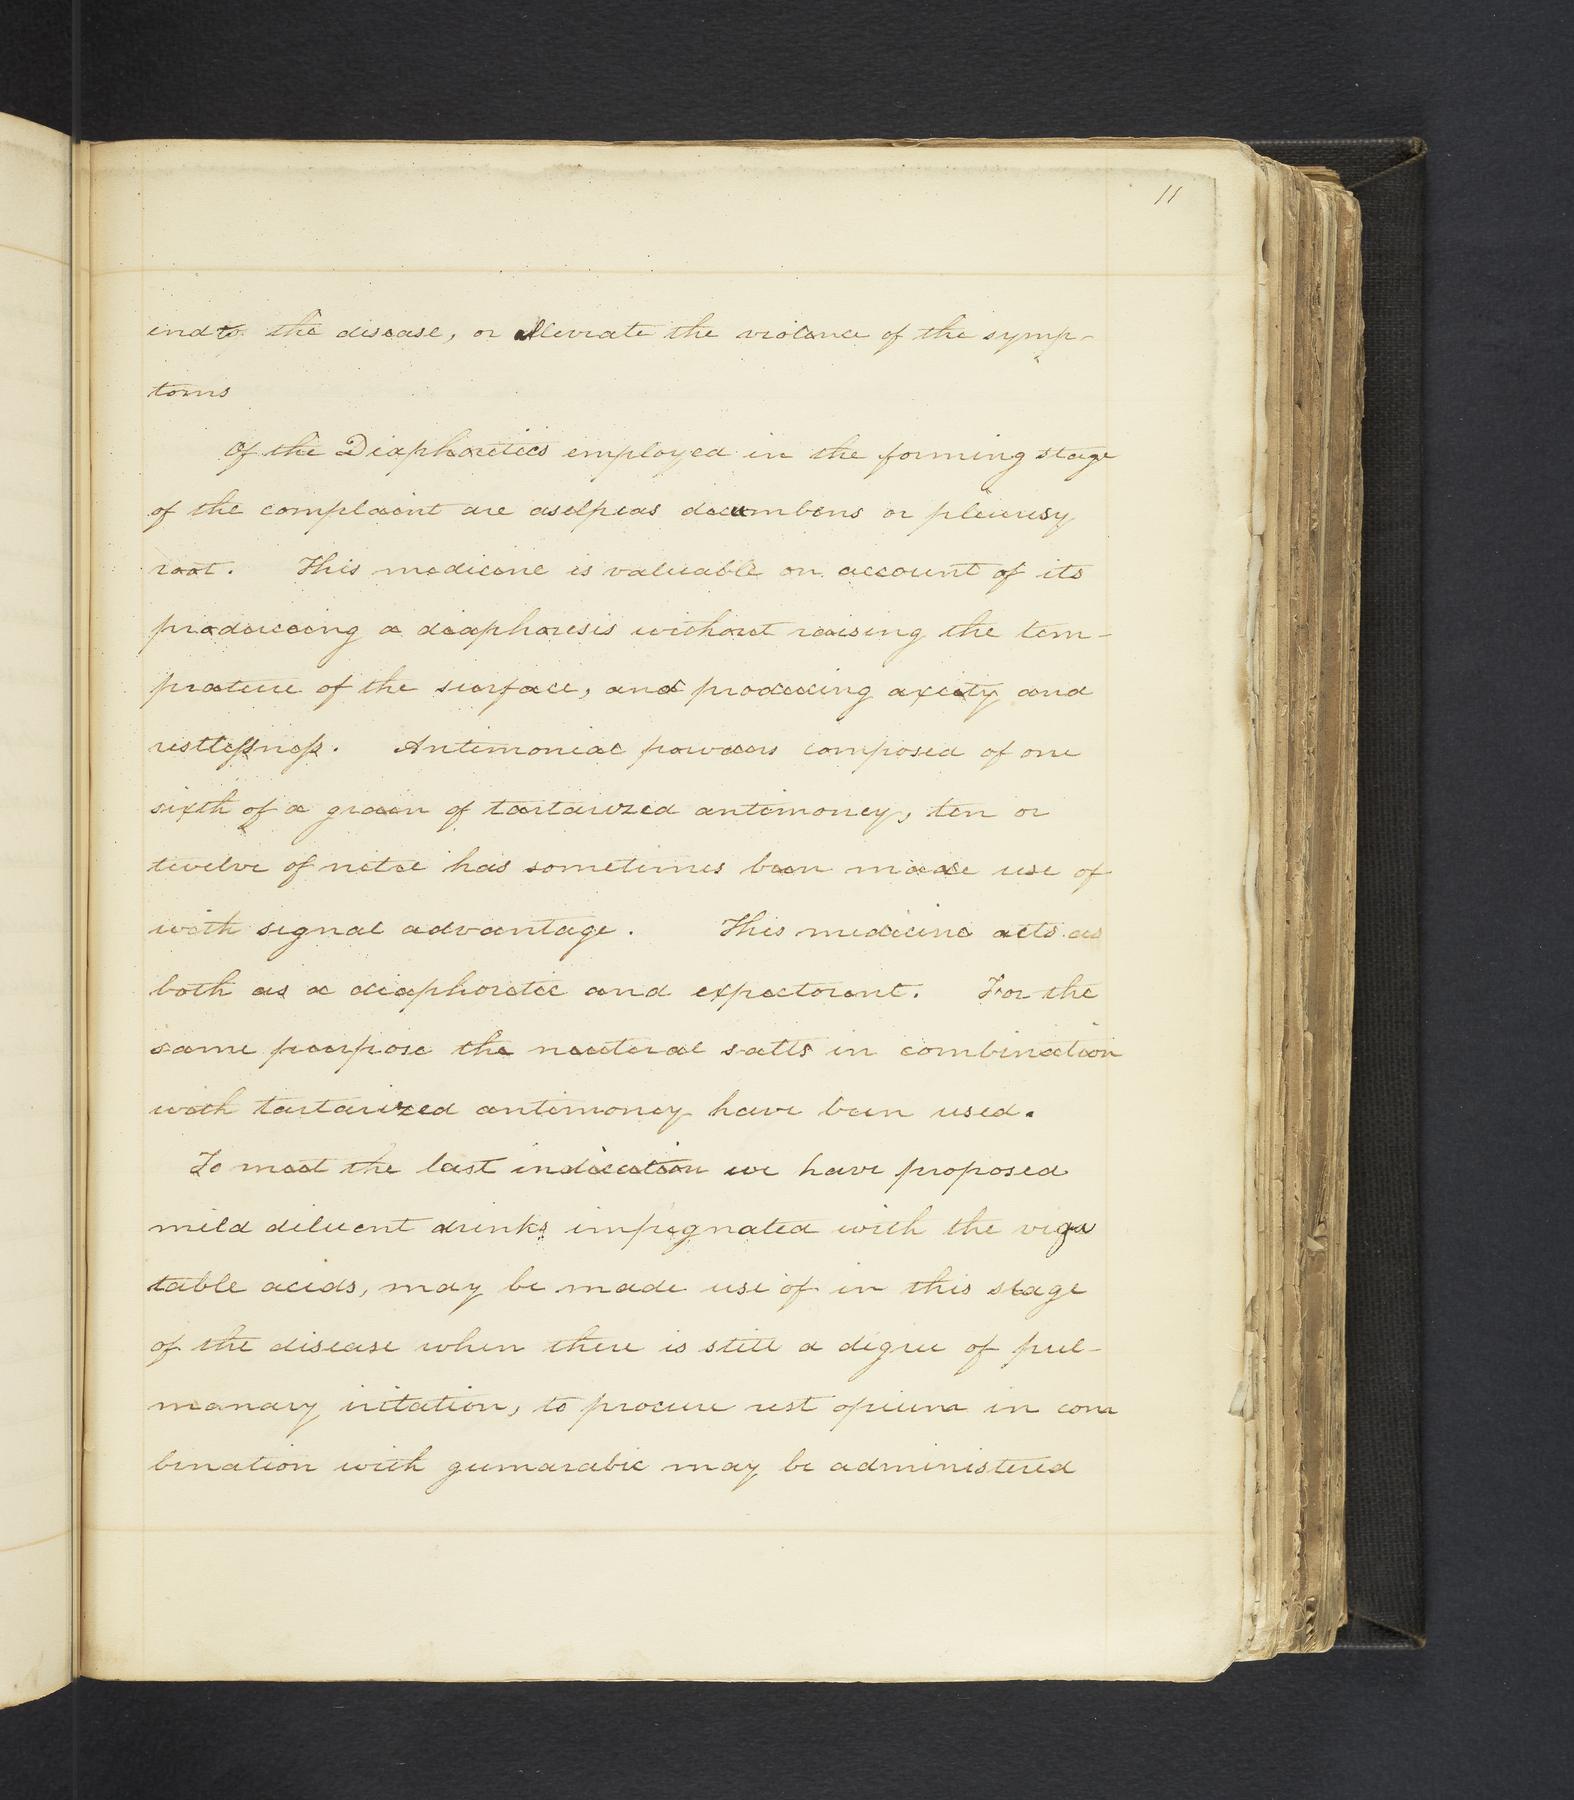 11
end to the disease, or alleviate the violence of the symp-
toms
Of the Diaphoretics employed in the forming stage
of the complaint are aselpias decumbens or pleurisy
root. This medicine is valuable on account of its
producing a diaphoresis without raising the tem-
prature of the surface, and producing axiety and
restlessness. Antimonial powders composed of one
sixth of a grain of tartarized antimoney, ten or
twelve of nitre has sometimes been made use of
with signal advantage. This medicine acts as
both as a diaphoretic and expectorant. For the
same purpose the neuteral salts in combination
with tartarized antimoney have been used.
To meet the last indication we have proposed
mild diluent drinks impregnated with the vega
table acids, may be made use of in this stage
of the disease when there is still a degree of pul-
monary iritation, to procure rest opium in com
bination with gumarabic may be administered